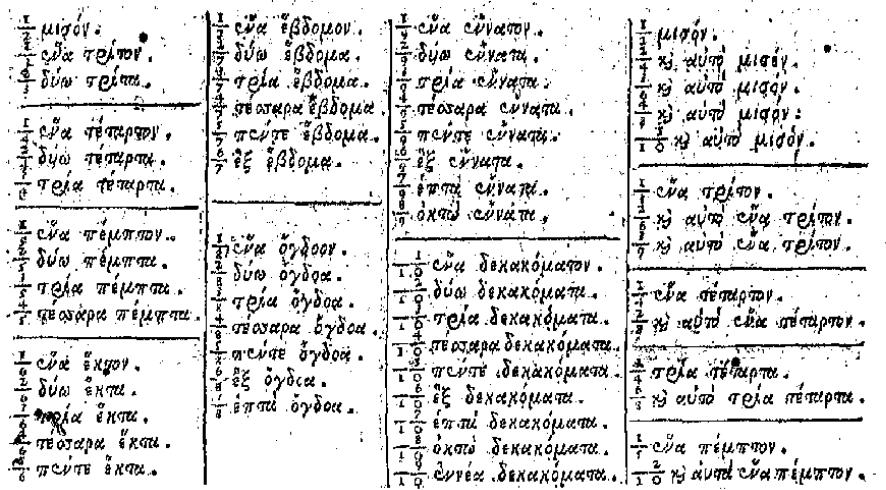 1/2 μισόν.
1/3 ἕνα τρίτον.
2/3 δύω τρίτα.
1/4 ἕνα τέταρτον.
2/4 δύω τέταρτα.
3/4 τρία τέταρτα.
1/5 ἕνα πέμπτον.
2/5 δύω πέμπτα.
3/5 τρία πέμπτα.
4/5 τέσσαρα πέμπτα.
1/6 ἕνα ἕκτον.
2/6 δύω ἕκτα.
3/6 τρία ἕκτα.
4/6 τέσσαρα ἕκτα.
5/6 πέντε ἕκτα.
1/7 ἕνα ἕβδομον.
2/7 δύω ἕβδομα.
3/7 τρία ἕβδομα.
4/7 τέσσαρα ἕβδομα.
5/7 πέντε ἕβδομα.
6/7 ἕξ ἕβδομα.
1/8 ἕνα ὄγδοον.
2/8 δύω ὄγδοα.
3/8 τρία ὄγδοα.
4/8 τέσσαρα ὄγδοα.
5/8 πέντε ὄγδοα.
6/8 ἕξ ὄγδοα.
7/8 ἑπτὰ ὄγδοα.
1/9 ἕνα ἔννατον.
2/9 δύω ἔννατα.
3/9 τρία ἔννατα.
4/9 τέσσαρα ἔννατα.
5/9 πέντε ἔννατα.
6/9 ἕξ ἔννατα.
7/9 ἑπτὰ ἔννατα.
8/9 ὀκτὼ ἔννατα.
1/10 ἕνα δεκακόματον.
2/10 δύω δεκακόματα.
3/10 τρία δεκακόματα.
4/10 τέσσαρα δεκακόματα.
5/10 πέντε δεκακόματα.
6/10 ἕξ δεκακόματα.
7/10 ἑπτὰ δεκακόματα.
8/10 ὀκτὼ δεκακόματα.
9/10 ἐννέα δεκακόματα.
1/2 μισόν.
2/4 κὶ αὐτὸ μισόν.
3/6 κὶ αὐτὸ μισόν.
4/8 κὶ αὐτὸ μισόν.
5/10 κὶ αὐτὸ μισόν.
1/3 ἕνα τρίτον.
κὶ αὐτὸ ἕνα τρίτον.
κὶ αὐτὸ ἕνα τρίτον.
1/4 ἕνα τέταρτον.
2/8 κὶ αὐτὸ ἕνα τέταρτον.
3/4 τρία τέταρτα.
6/8 κὶ αὐτὸ τρία τέταρτα.
1/5 ἕνα πέμπτον.
2/10 κὶ αὐτὰ ἕνα πέμπτον.